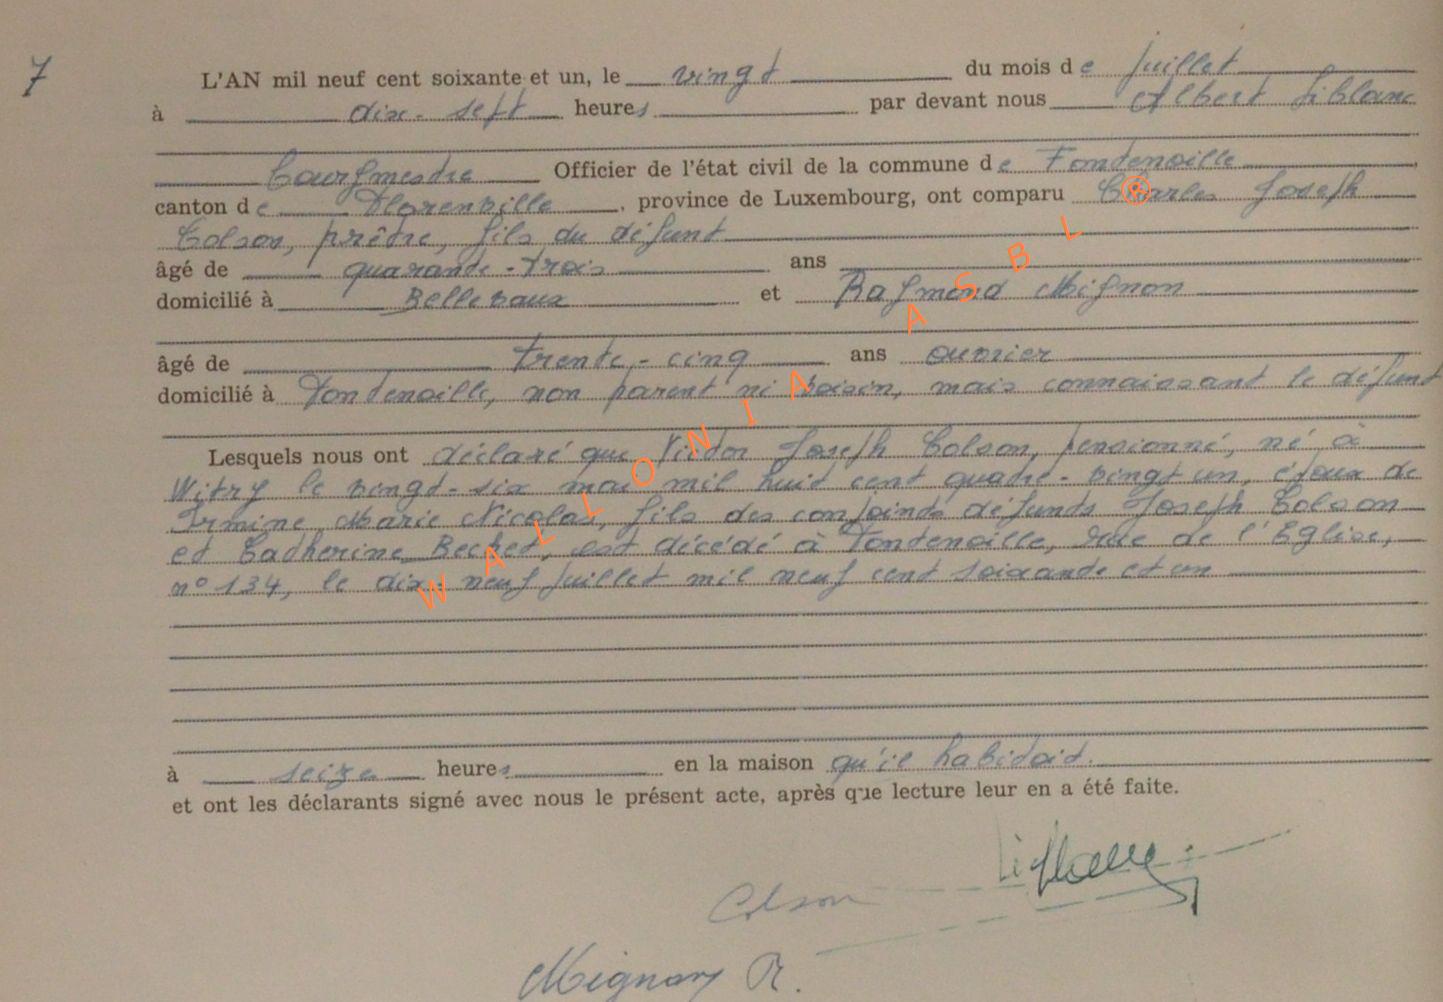 7
L'AN mil neuf cent soixante et un, le vingt du mois de juillet
à dix-sept heures par devant nous Albert Liblanc
Bourgmestre Officier de l'état civil de la commune de Fontenoille
canton de Florenville, province de Luxembourg, ont comparu Charles Joseph
Colson, prêtre, fils du défunt
âgé de quarante-trois ans
domicilié à Bellevaux et Raymond Mignon
âgé de trente-cinq ans ouvrier
domicilié à Fontenoille, non parent ni voisin, mais connaissant le défunt
Lesquels nous ont déclaré que Victor Joseph Colson, pensionné, né à
Witry le vingt-six mai mil huit cent quatre-vingt un, époux de
Irmine Marie Nicolas, fils des conjoints défunts Joseph Colson
et Catherine Bechet, est décédé à Fontenoille, rue de l'Eglise,
n° 134, le dix-neuf juillet mil neuf cent soixante et un
à seize heures en la maison qu'il habitait.
et ont les déclarants signé avec nous le présent acte, après que lecture leur en a été faite.
Colson
Mignon R.
WALLONIA ASBL ®